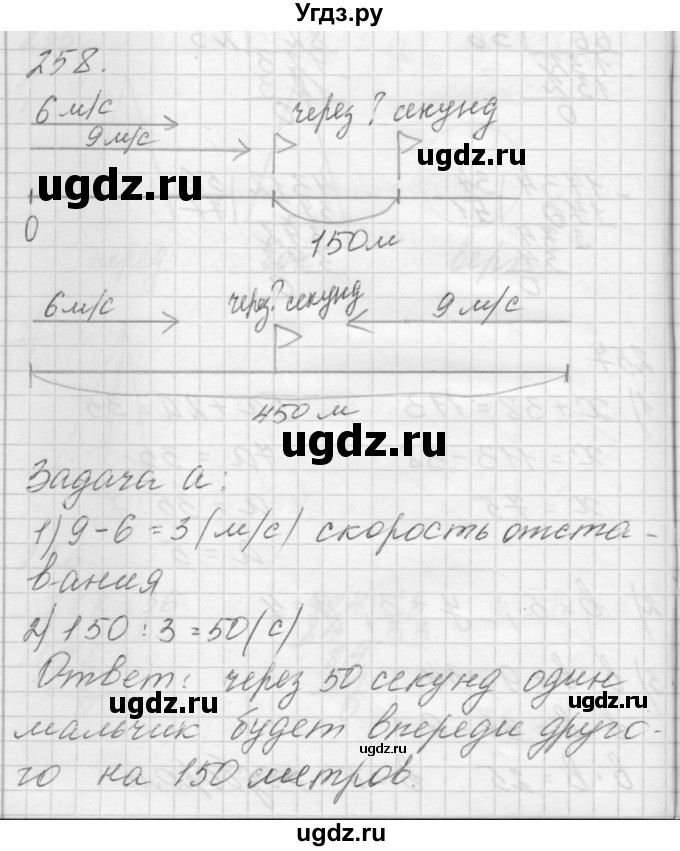 Угдз.ру
258.
6 м/с
9 м/с
через ? секунд
ugdz.ru
ugdz.ru
0
150 м
6 м/с
через ? секунд
9 м/с
450 м
ugdz.ru
Задача а:
1) 9 - 6 = 3 (м/с) скорость отста-
вания
2) 150 : 3 = 50 (с)
ugdz.ru
Ответ: через 50 секунд один
мальчик будет впереди друго-
ugdz.ru
го на 150 метров.
ugdz.ru
ugdz.ru